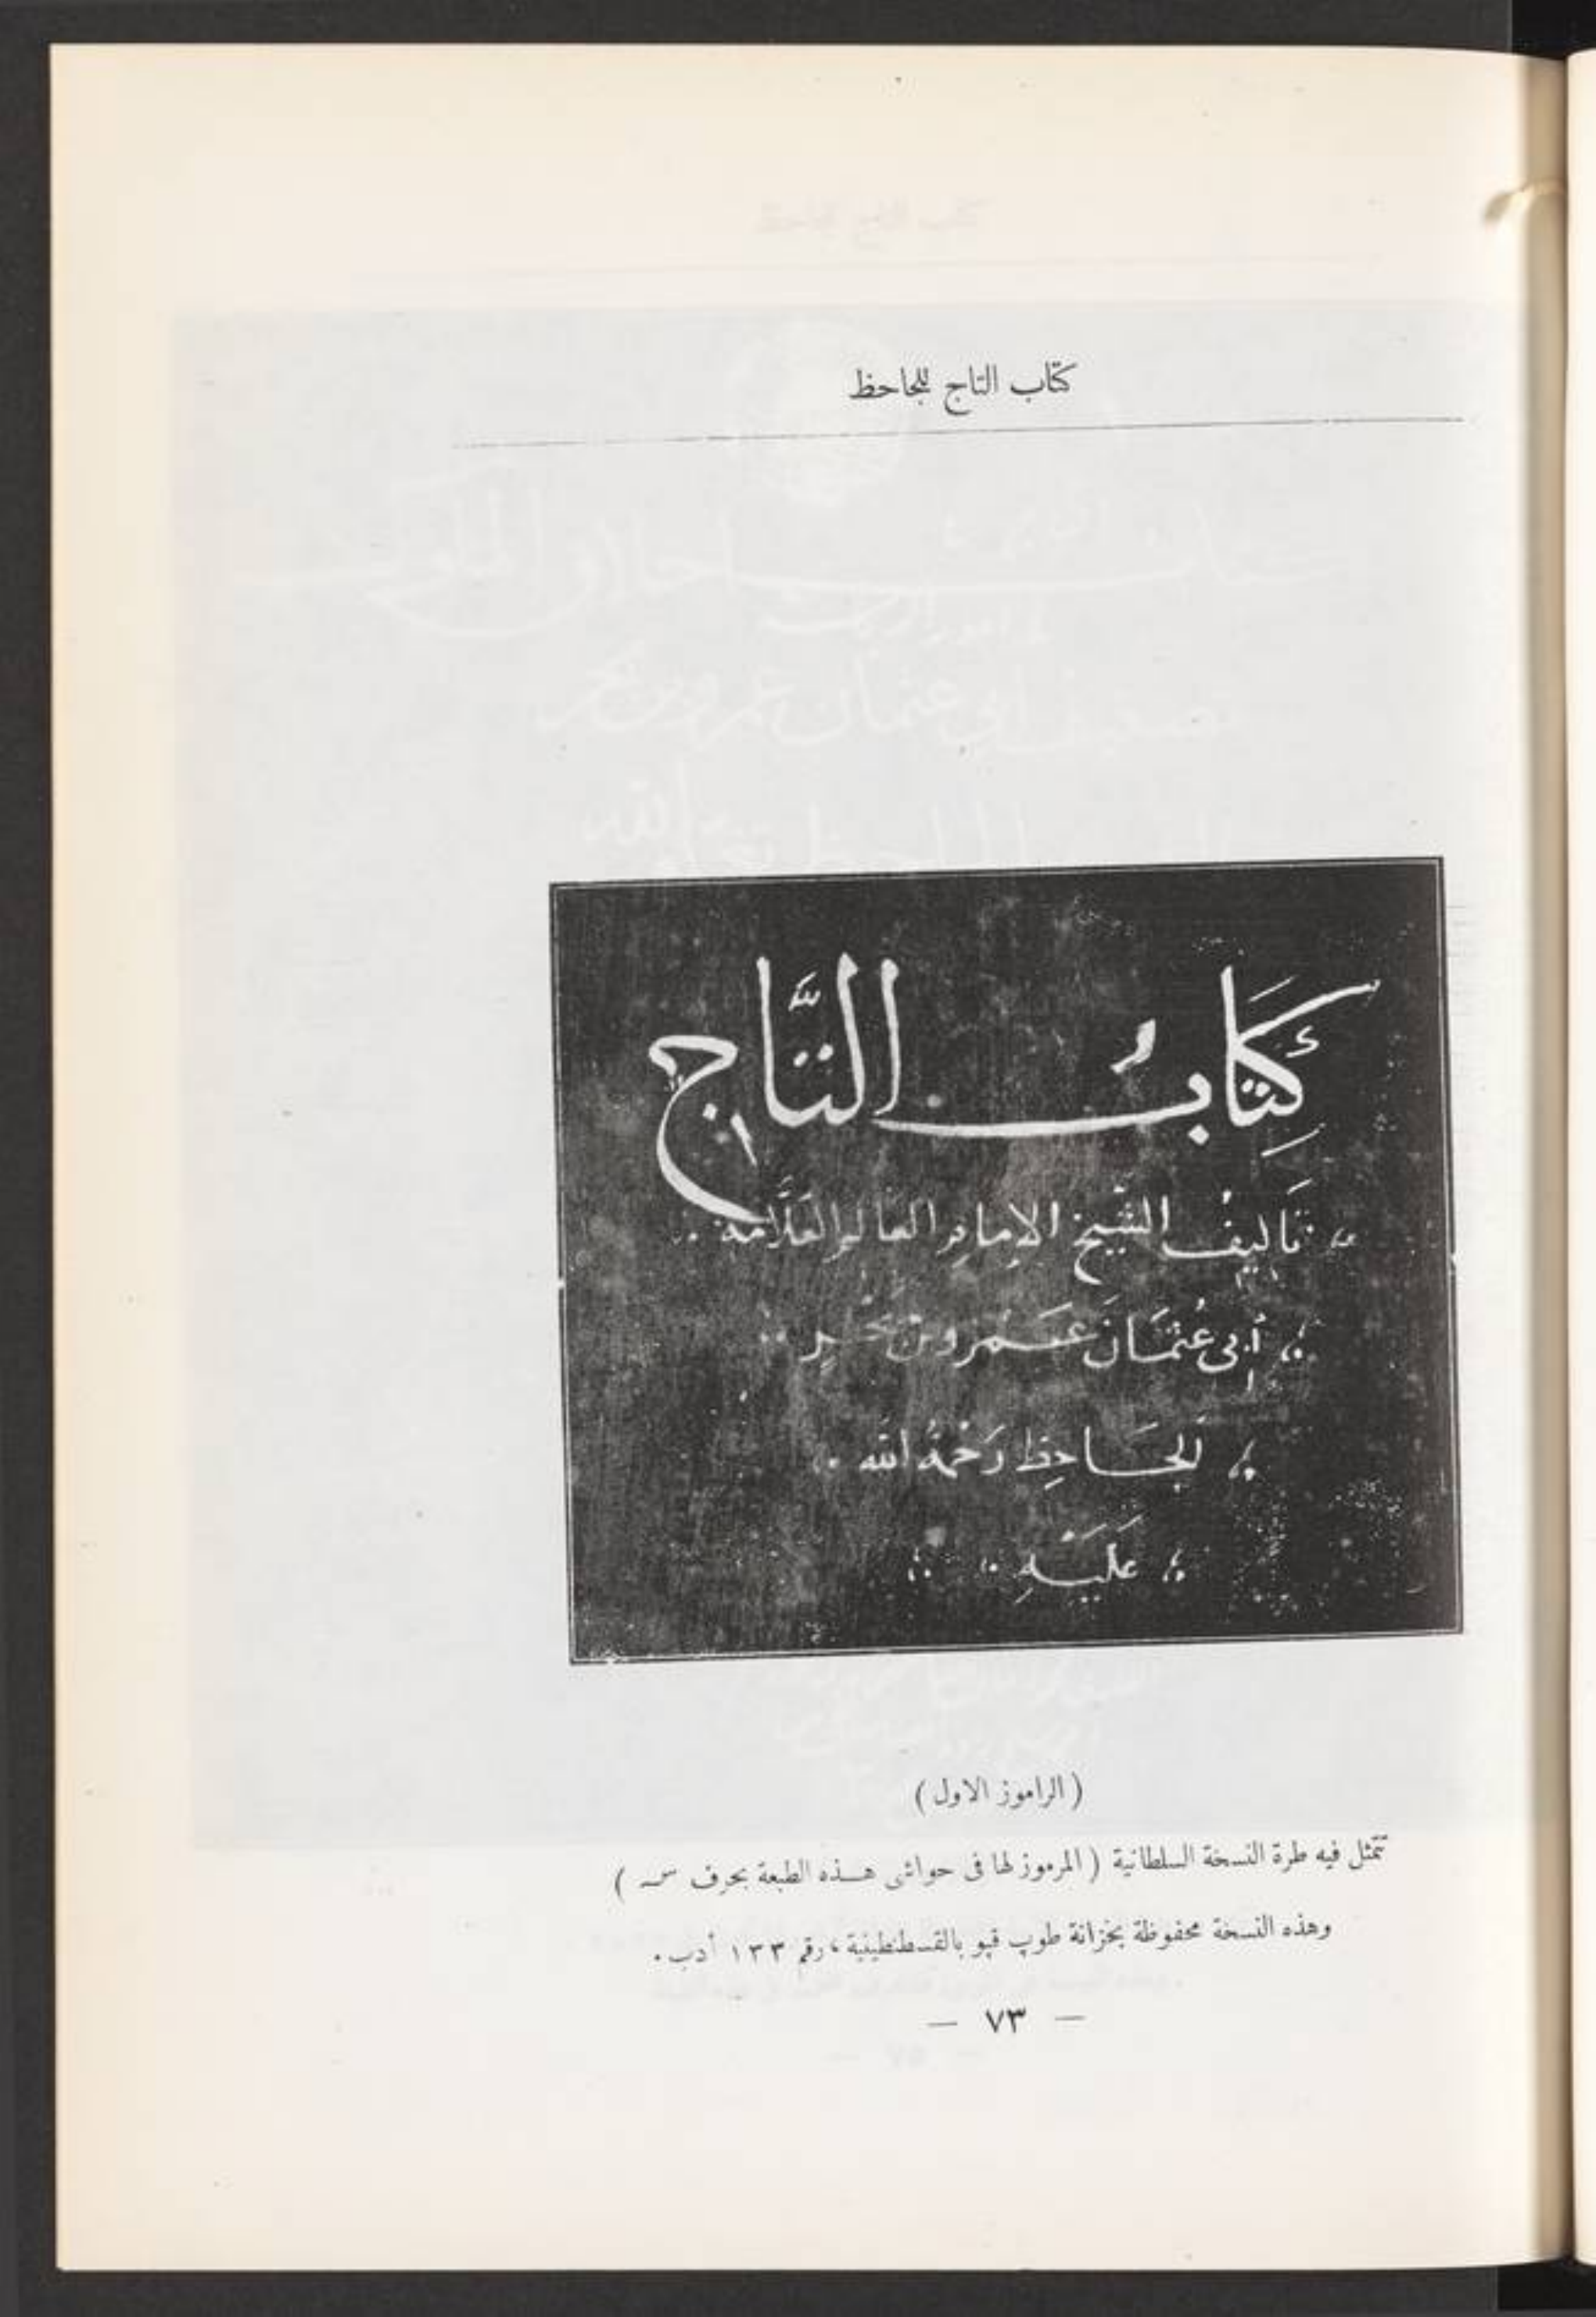 كتاب التاج للجاحظ
كِتَابُ التَّاج
تَأليفُ الشَّيخ الإمامِ العَالم العَلَّامة
أبى عُثمَانَ عَمرو بن بَحرٍ
الجَاحِظ رَحْمَةُ الله
عَلَيْهِ
( الراموز الاول )
تتمثل فيه طرة النسخة السلطانية ( المرموز لها فى حواشى هذه الطبعة بحرف سـ )
وهذه النسخة محفوظة بخزانة طوپ قپو بالقسطنطينية ، رقم ١٣٣ أدب .
— ٧٣ —